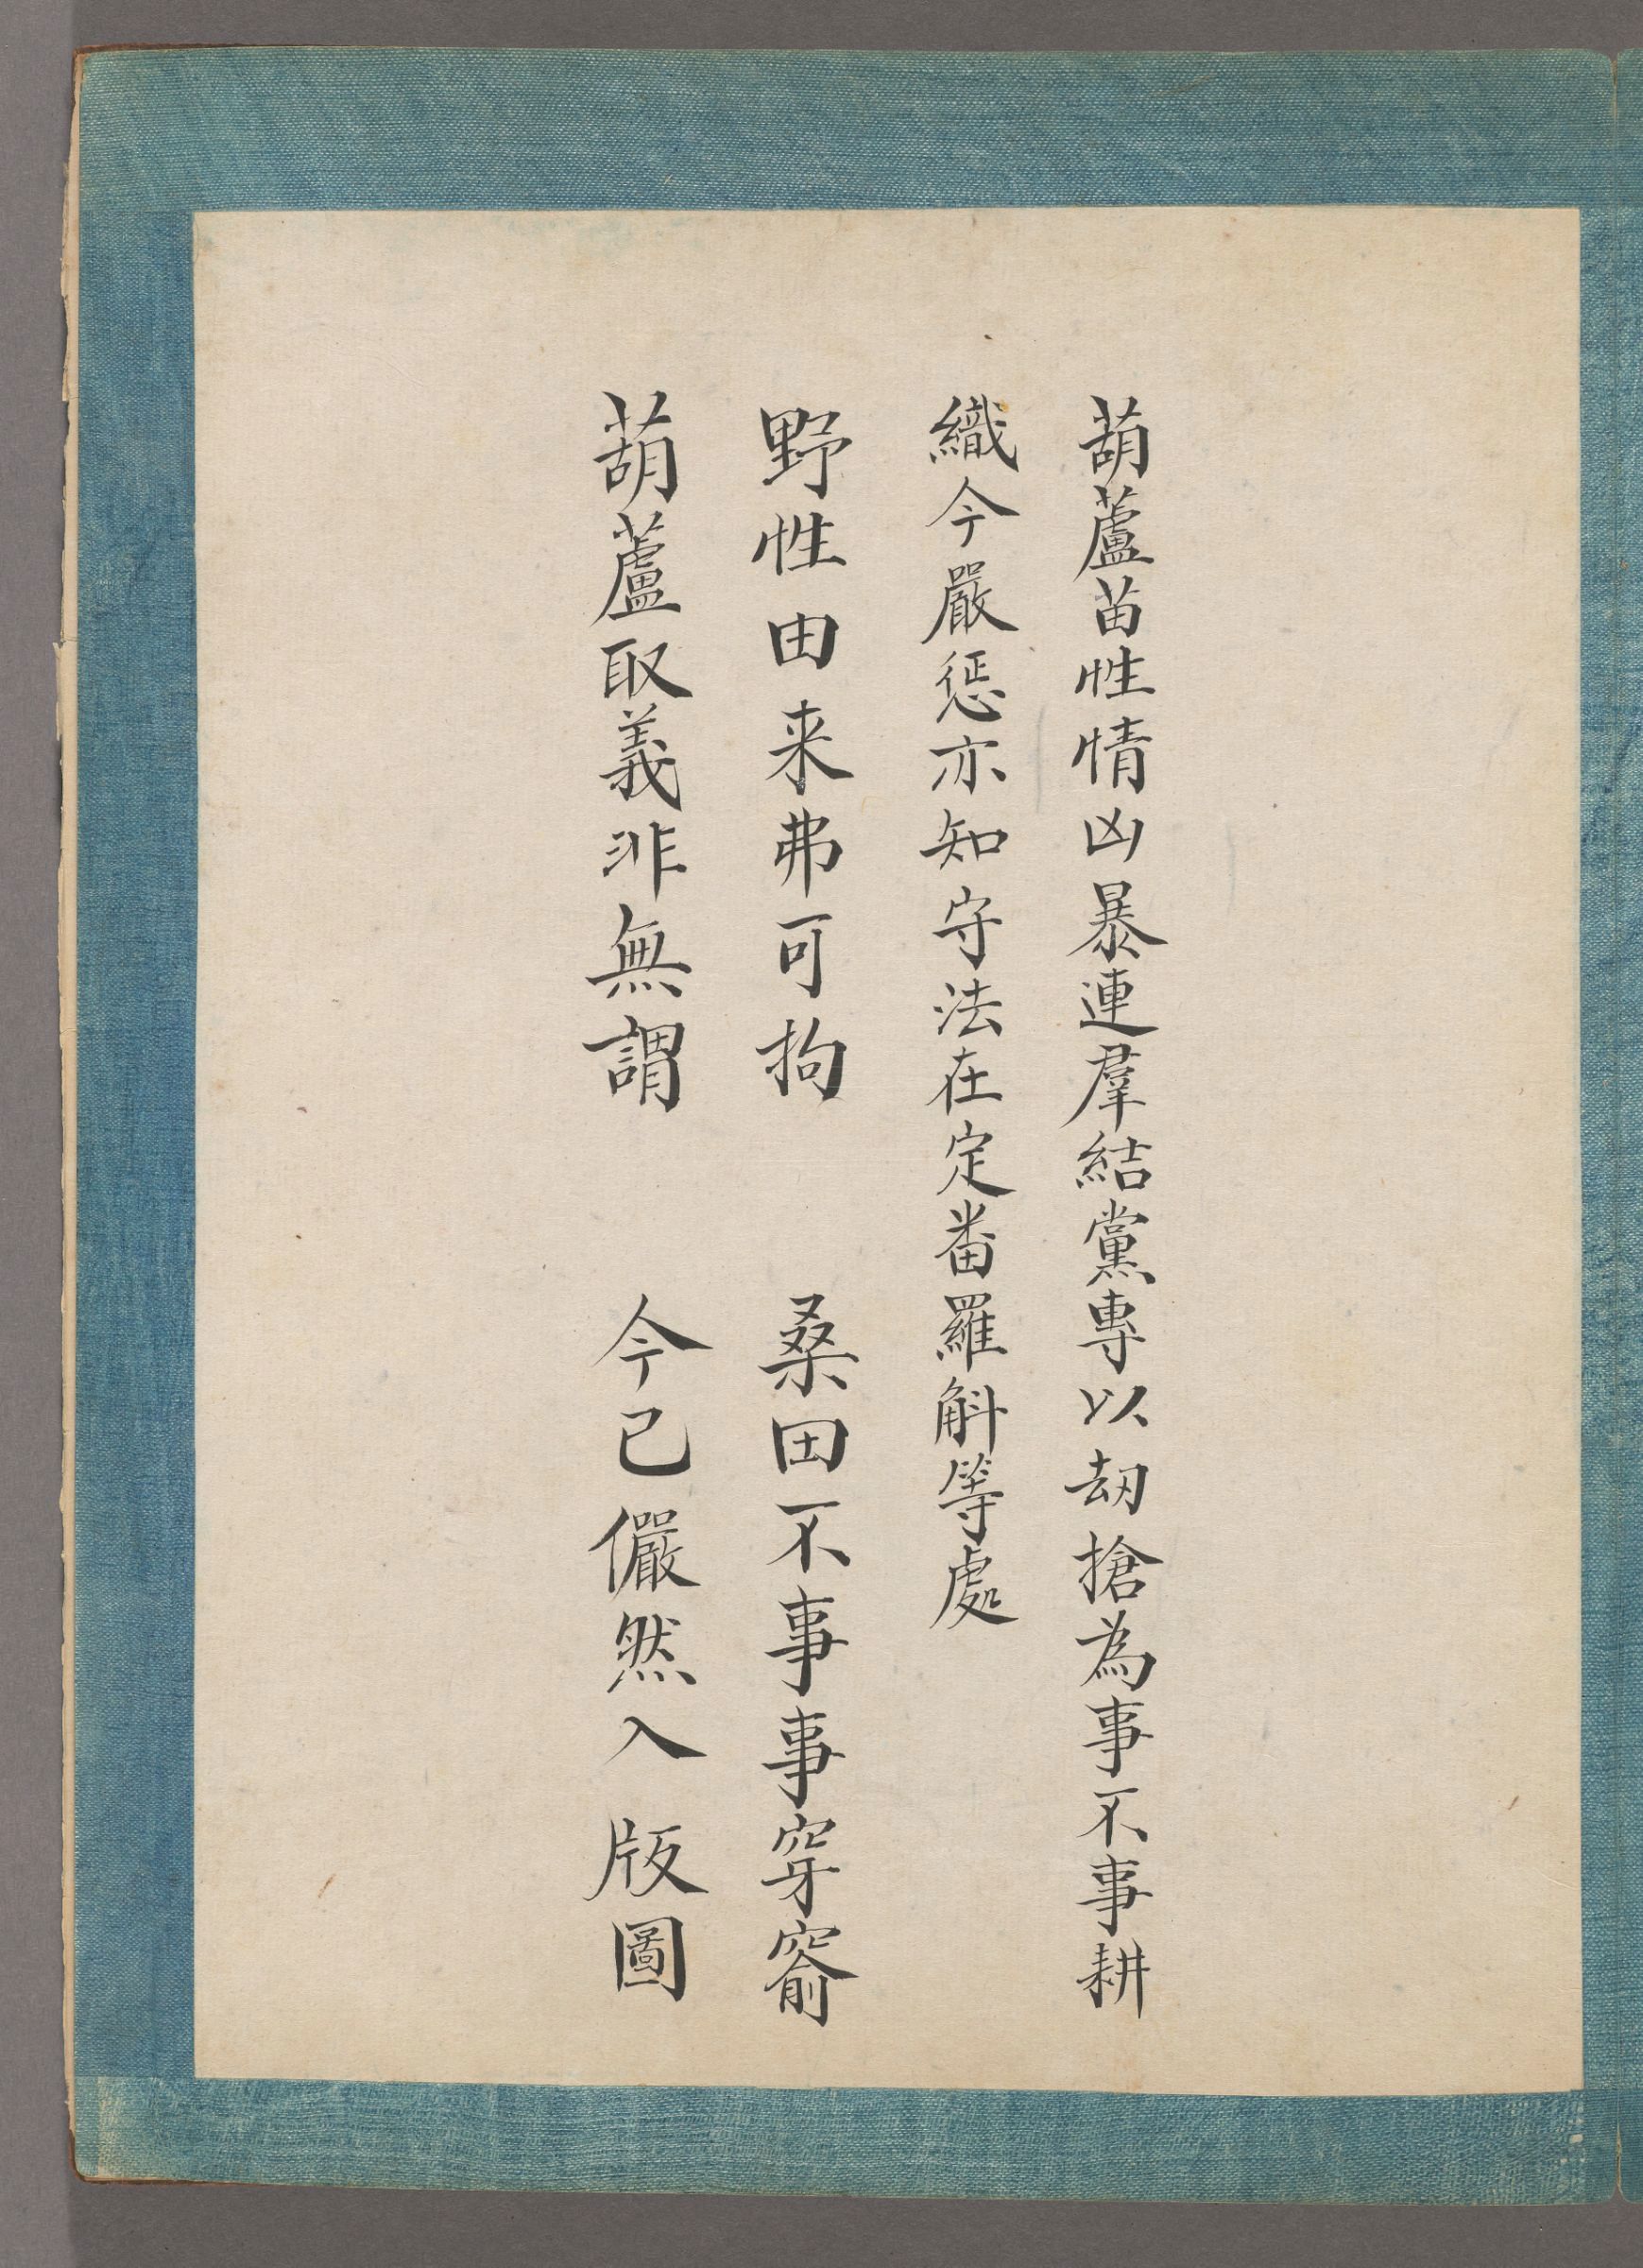 葫蘆苗性情凶暴連羣結黨專以刼搶為事不事耕
織今嚴惩亦知守法在定番羅斛等處
野性由来弗可拘　桑田不事事穿窬
葫蘆取義非無謂　今已儼然入版圖